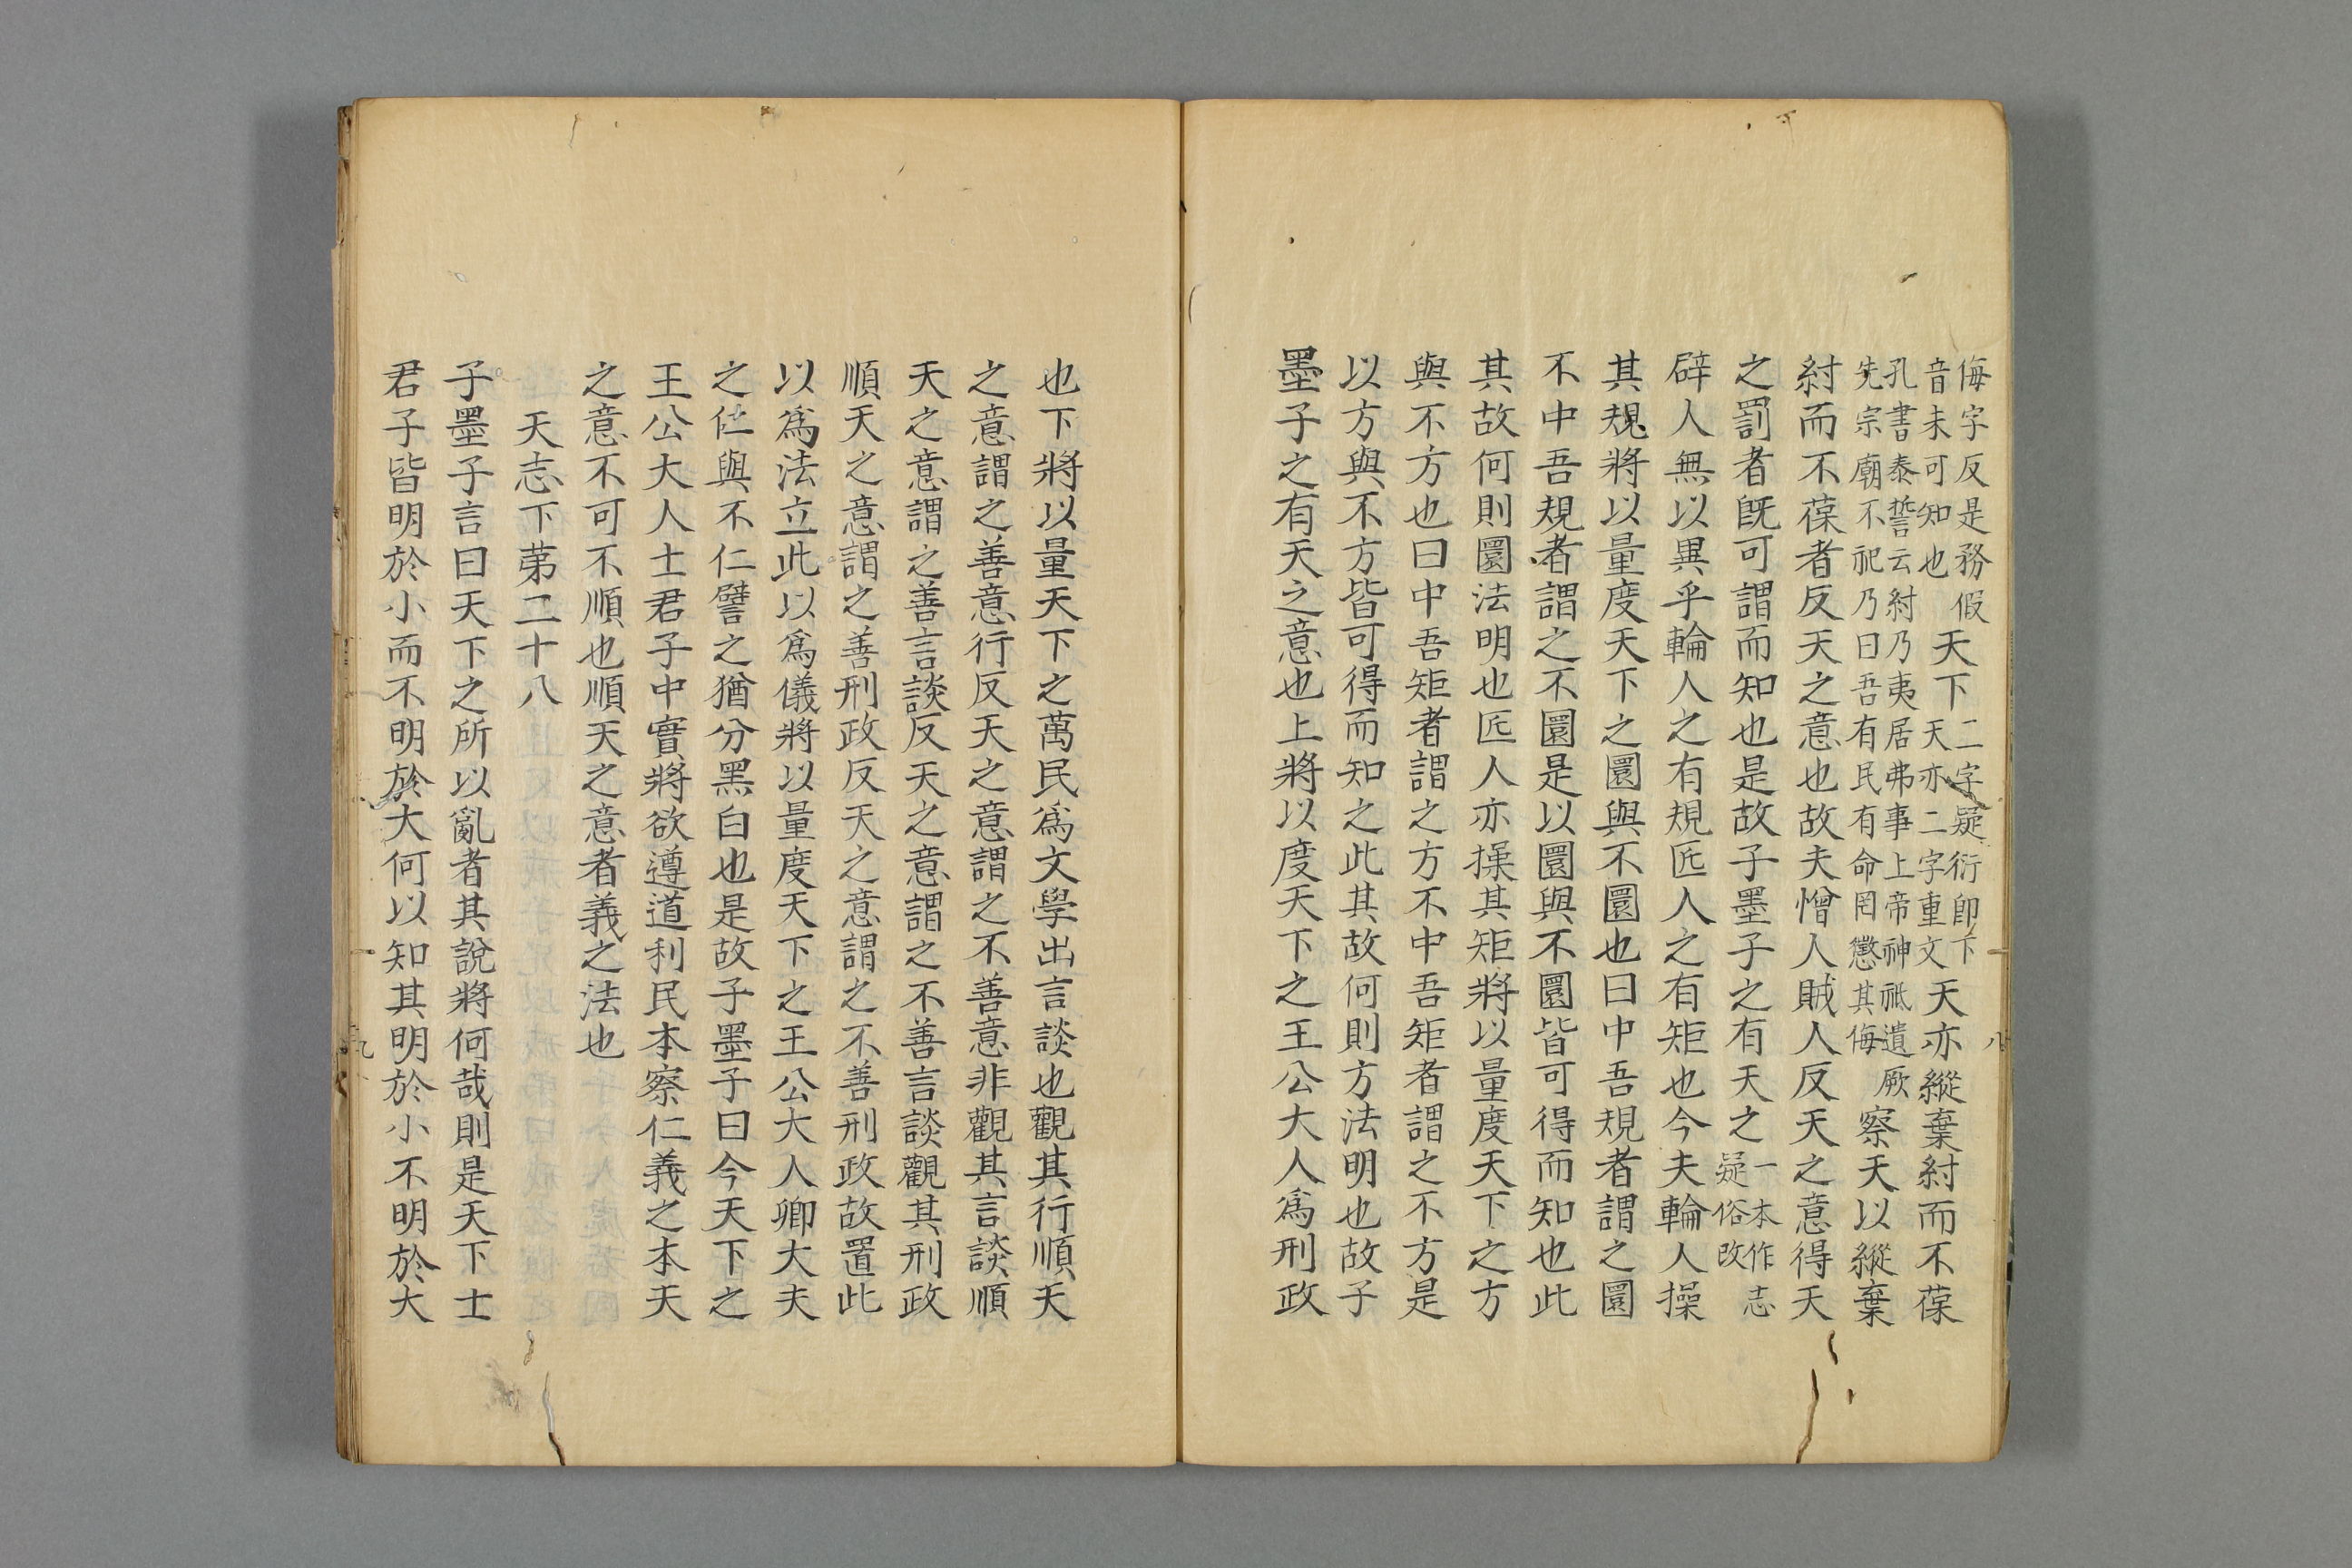 侮字反是務假音未可知也天下二字疑衍卽下天亦二字重文天亦縱棄紂而不葆
孔書泰誓云紂乃夷居弗事上帝神祗遺厥先宗廟不祀乃曰吾有民有命罔懲其侮察天以縱棄
紂而不葆者反天之意也故夫憎人賊人反天之意得天
之罰者旣可謂而知也是故子墨子之有天之一本作志疑俗改
辟人無以異乎輪人之有規匠人之有矩也今夫輪人操
其規將以量度天下之圜與不圜也曰中吾規者謂之圜
不中吾規者謂之不圜是以圜與不圜皆可得而知也此
其故何則圜法明也匠人亦操其矩將以量度天下之方
與不方也曰中吾矩者謂之方不中吾矩者謂之不方是
以方與不方皆可得而知之此其故何則方法明也故子
墨子之有天之意也上將以度天下之王公大人爲刑政
也下將以量天下之萬民爲文學出言談也觀其行順天
之意謂之善意行反天之意謂之不善意非觀其言談順
天之意謂之善言談反天之意謂之不善言談觀其刑政
順天之意謂之善刑政反天之意謂之不善刑政故置此
以爲法立此以爲儀將以量度天下之王公大人卿大夫
之仁與不仁譬之猶分黑白也是故子墨子曰今天下之
王公大人士君子中實將欲遵道利民本察仁義之本天
之意不可不順也順天之意者義之法也
天志下第二十八
子墨子言曰天下之所以亂者其說將何哉則是天下士
君子皆明於小而不明於大何以知其明於小不明於大
八
九